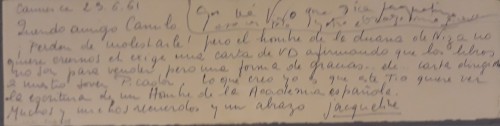 Cannes le 23.6.61
Querido amigo Camilo
¡Perdon de molestarle! pero el hombre de la duana de Niza no
quiere creernos el exige una carta de VD afirmando que los libros
no son para vender, pero una forma de gracias.. de carte dirigida
a nuestro joven Picasso. Lo que creo yo es que este Tio quiere ver
la escritura de un Hombre de la Academia española.
Muchos y muchos recuerdos y un abrazo Jacqueline